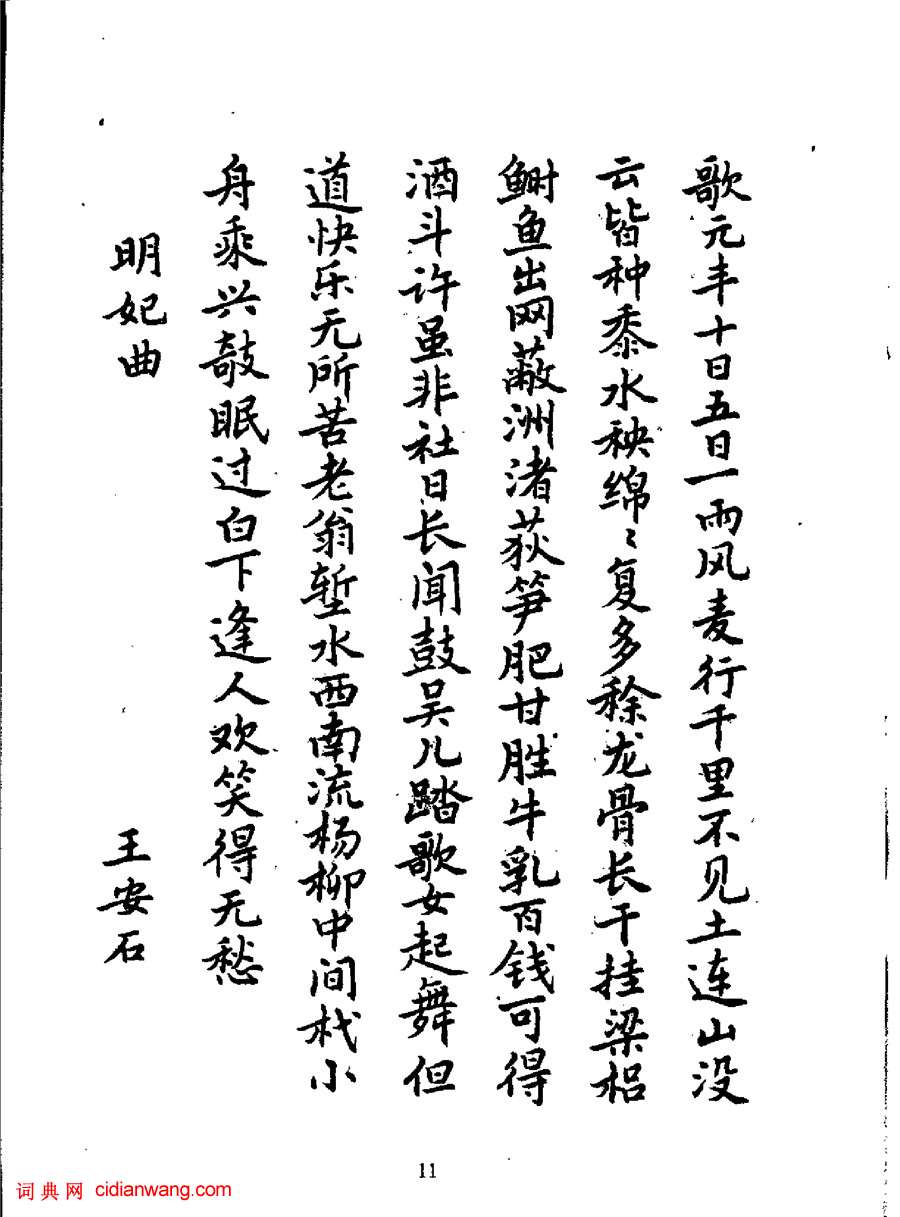 歌元丰十日五日一雨风麦行千里不见土连山没
云皆种黍水秧绵〻复多稌龙骨长干挂梁梠
鲥鱼出网蔽洲渚荻笋肥甘胜牛乳百钱可得
酒斗许虽非社日长闻鼓吴儿踏歌女起舞但
道快乐无所苦老翁堑水西南流杨柳中间杙小
舟乘兴敧眠过白下逢人欢笑得无愁
明妃曲 王安石
11
词典网 cidianwang.com